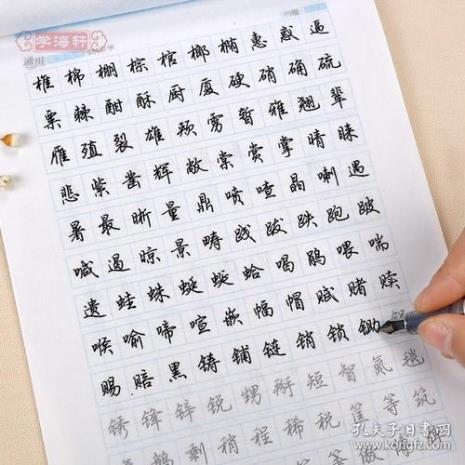 学海轩
通用
行楷
椎棉棚棕棺椰椭惠惑逼
粟棘酣酥厨厦硬硝确硫
雁殖裂雄颊雳暂雅翘辈
悲紫凿辉敞棠赏掌晴睐
暑最晰量鼎喷喳晶喇遇
喊遏晾景畴践跋跌跑跛
遗蛙蛛蜓蜒蛤喝鹃喂喘
喉喻啼喧嵌幅帽赋赌赎
赐赔黑铸铺链销锁锄锅
锈锋锌锐甥掰短智氮毯
剩稍程稀税筐等筑
孔夫子旧书网
www.kongfz.com